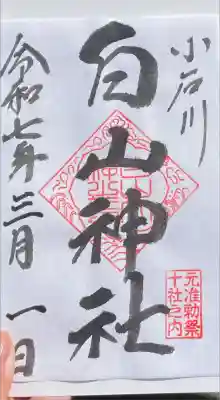 小石川
白山神社
元准勅祭
十社之内
令和七年三月一日